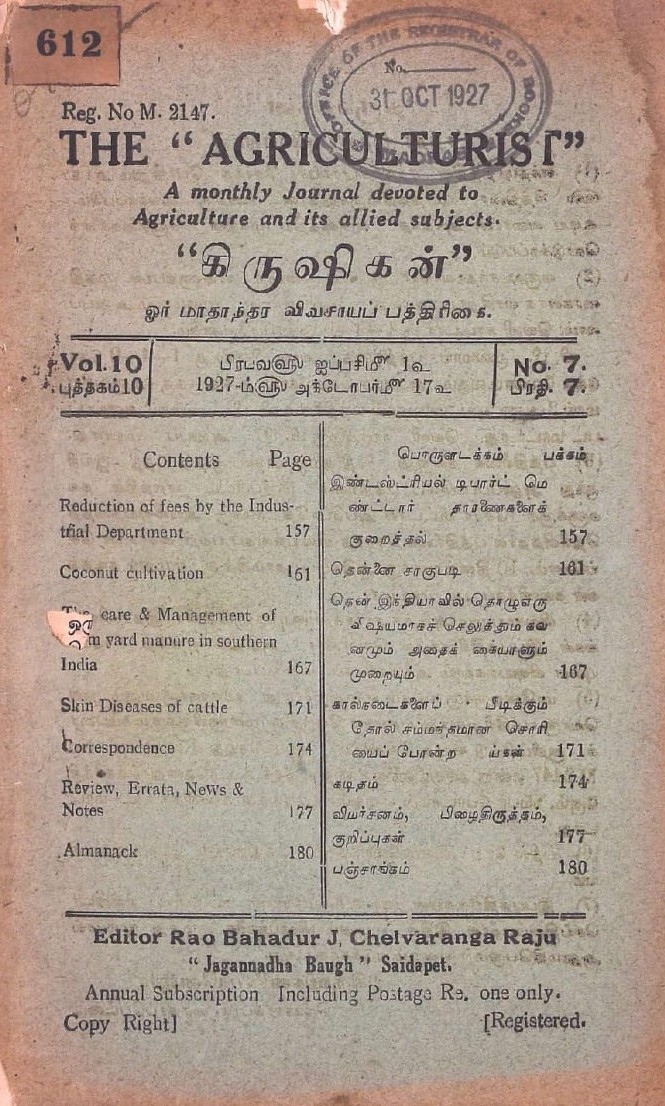 612
OFFICE OF THE REGISTRAR OF BOOKS
No.
31 OCT 1927
Reg. No M. 2147.
THE “AGRICULTURIST”
A monthly Journal devoted to
Agriculture and its allied subjects.
“கிருஷிகன்”
ஓர் மாதாந்தர விவசாயப் பத்திரிகை.
Vol. 10
புத்தகம் 10
பிரபவ௵ ஐப்பசி௴ 1௳
1927-ம்௵ அக்டோபர்௴ 17௳
No. 7.
பிரதி. 7.
Contents Page
Reduction of fees by the Indus-
trial Department 157
Coconut cultivation 161
The care & Management of
m yard manure in southern
India 167
Skin Diseases of cattle 171
Correspondence 174
Review, Errata, News &
Notes 177
Almanack 180
பொருளடக்கம் பக்கம்
இண்டஸ்ட்ரியல் டிபார்ட் மெ
ண்ட்டார் தாரணைகளைக்
குறைத்தல் 157
தென்னை சாகுபடி 161
தென் இந்தியாவில் தொழுஎரு
விஷயமாகச் செலுத்தும் கவ
னமும் அதைக் கையாளும்
முறையும் 167
கால்நடைகளைப் பீடிக்கும்
தோல் சம்மந்தமான சொரி
யைப் போன்ற 171
கடிதம் 174
வியர்சனம், பிழைதிருத்தம்,
குறிப்புகள் 177
பஞ்சாங்கம் 180
Editor Rao Bahadur J. Chelvaranga Raju
“Jagannadha Baugh” Saidapet.
Annual Subscription Including Postage Re. one only.
Copy Right] [Registered.